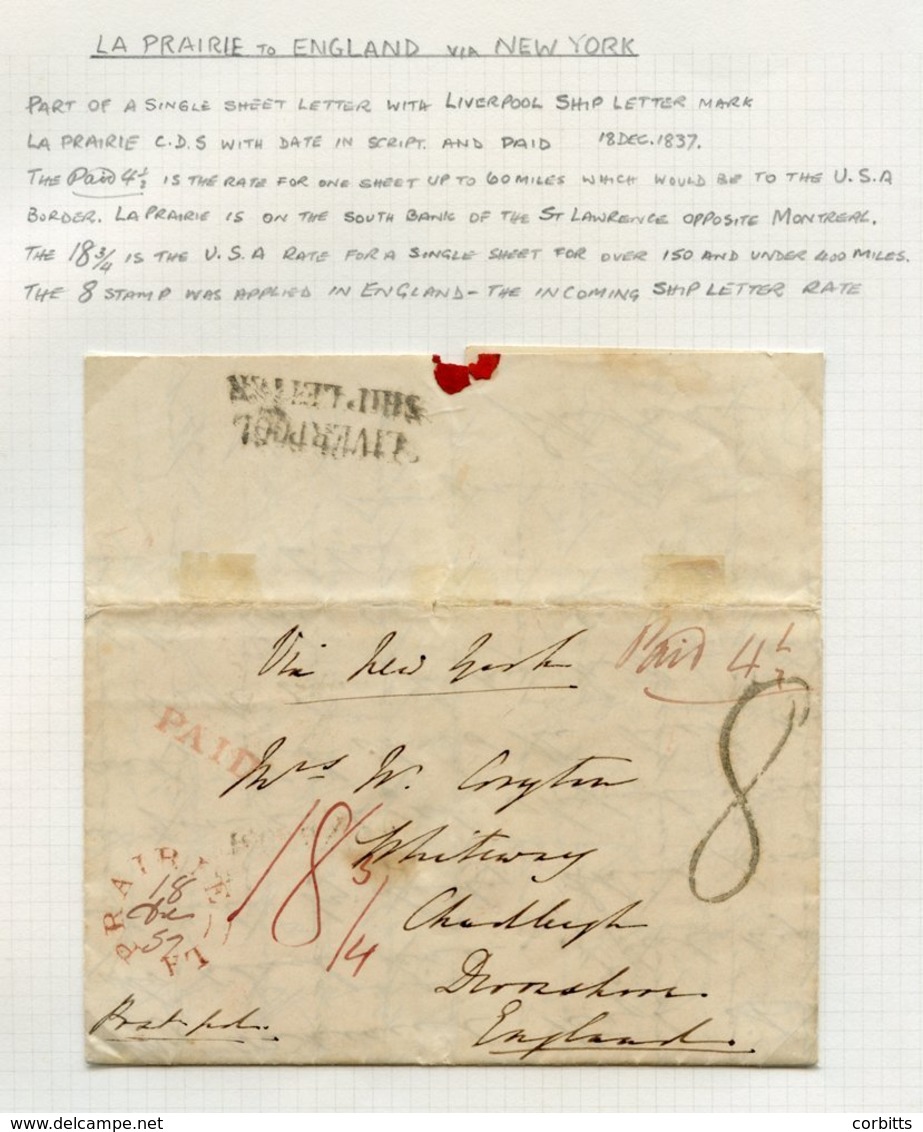 LA PRAIRIE TO ENGLAND VIA NEW YORK
PART OF A SINGLE SHEET LETTER WITH LIVERPOOL SHIP LETTER MARK
LA PRAIRIE C.D.S WITH DATE IN SCRIPT. AND PAID 18 DEC. 1837.
THE Paid 4½ IS THE RATE FOR ONE SHEET UP TO 60 MILES WHICH WOULD BE TO THE U.S.A
BORDER. LA PRAIRIE IS ON THE SOUTH BANK OF THE ST LAWRENCE OPPOSITE MONTREAL.
THE 18¾ IS THE U.S.A RATE FOR A SINGLE SHEET FOR OVER 150 AND UNDER 400 MILES.
THE 8 STAMP WAS APPLIED IN ENGLAND - THE INCOMING SHIP LETTER RATE
LIVERPOOL
SHIP LETTER
Via New York
Paid 4½
PAID
8
Mrs W. Coryton
18¾
Whiteway
Chudleigh
Devonshire
England
LA PRAIRIE
18
Dec
37
Post pd.
corbitts